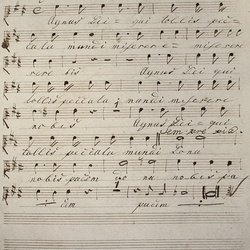 Agnus Dei = qui tollis pec=
cata mundi miserere = misere
rere bis Agnus Dei qui
tollis peccata mundi miserere
nobis Agnus Dei = qui
tollis peccatu mundi Dona
nobis pacem do na nobis pa
cem pacem